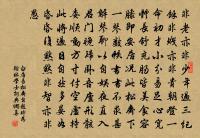 非老亦非少年過三紀
餘非賤亦非貴朝登一
命初才小分易足心寬
體長舒充腸皆美食容
膝即安居況此松齋下
一琴數帙書書不求甚
解琴聊以自娛夜直入
君門晚歸臥吾廬形骸
委順動方寸付空虛持
此將過日自然多晏如
昏昏復默默非智亦非
愚
白居易松齋自題時為
翰林學士